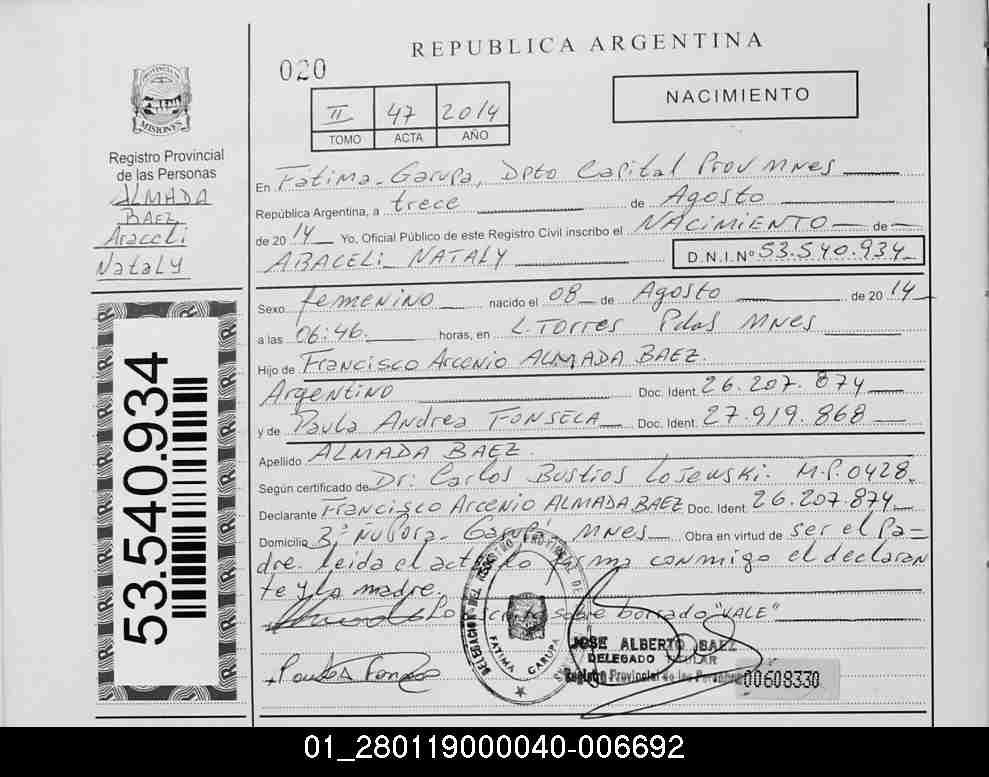 REPUBLICA ARGENTINA
020
NACIMIENTO
II 47 2014
TOMO ACTA AÑO
PROVINCIA DE
MISIONES
Registro Provincial
de las Personas
ALMADA
BAEZ
Araceli
Nataly
53.540.934
En Fátima - Garupa, Dpto Capital Prov Mnes
República Argentina, a trece de Agosto
de 2014 Yo, Oficial Público de este Registro Civil inscribo el NACIMIENTO de
ARACELI NATALY D.N.I.Nº 53.540.934
Sexo femenino nacido el 08 de Agosto de 2014
a las 06:46 horas, en L. Torres Pdas Mnes
Hijo de Francisco Arcenio ALMADA BAEZ.
Argentino Doc. Ident. 26.207.874
y de Paula Andrea FONSECA Doc. Ident. 27.919.868
Apellido ALMADA BAEZ.
Según certificado de Dr: Carlos Bustios Losewski. M.P. 0428.
Declarante Francisco Arcenio ALMADA BAEZ Doc. Ident. 26.207.874
Domicilio Garupá Mnes Obra en virtud de ser el Pa=
dre. leida el acta conmigo el declaran
te y la madre.
sobre borrado "VALE"
DELEGACION DEL REGISTRO PROVINCIAL DE
FATIMA GARUPA
JOSE ALBERTO BAEZ
DELEGADO TITULAR
Registro Provincial de las Personas
00608330
01_280119000040-006692